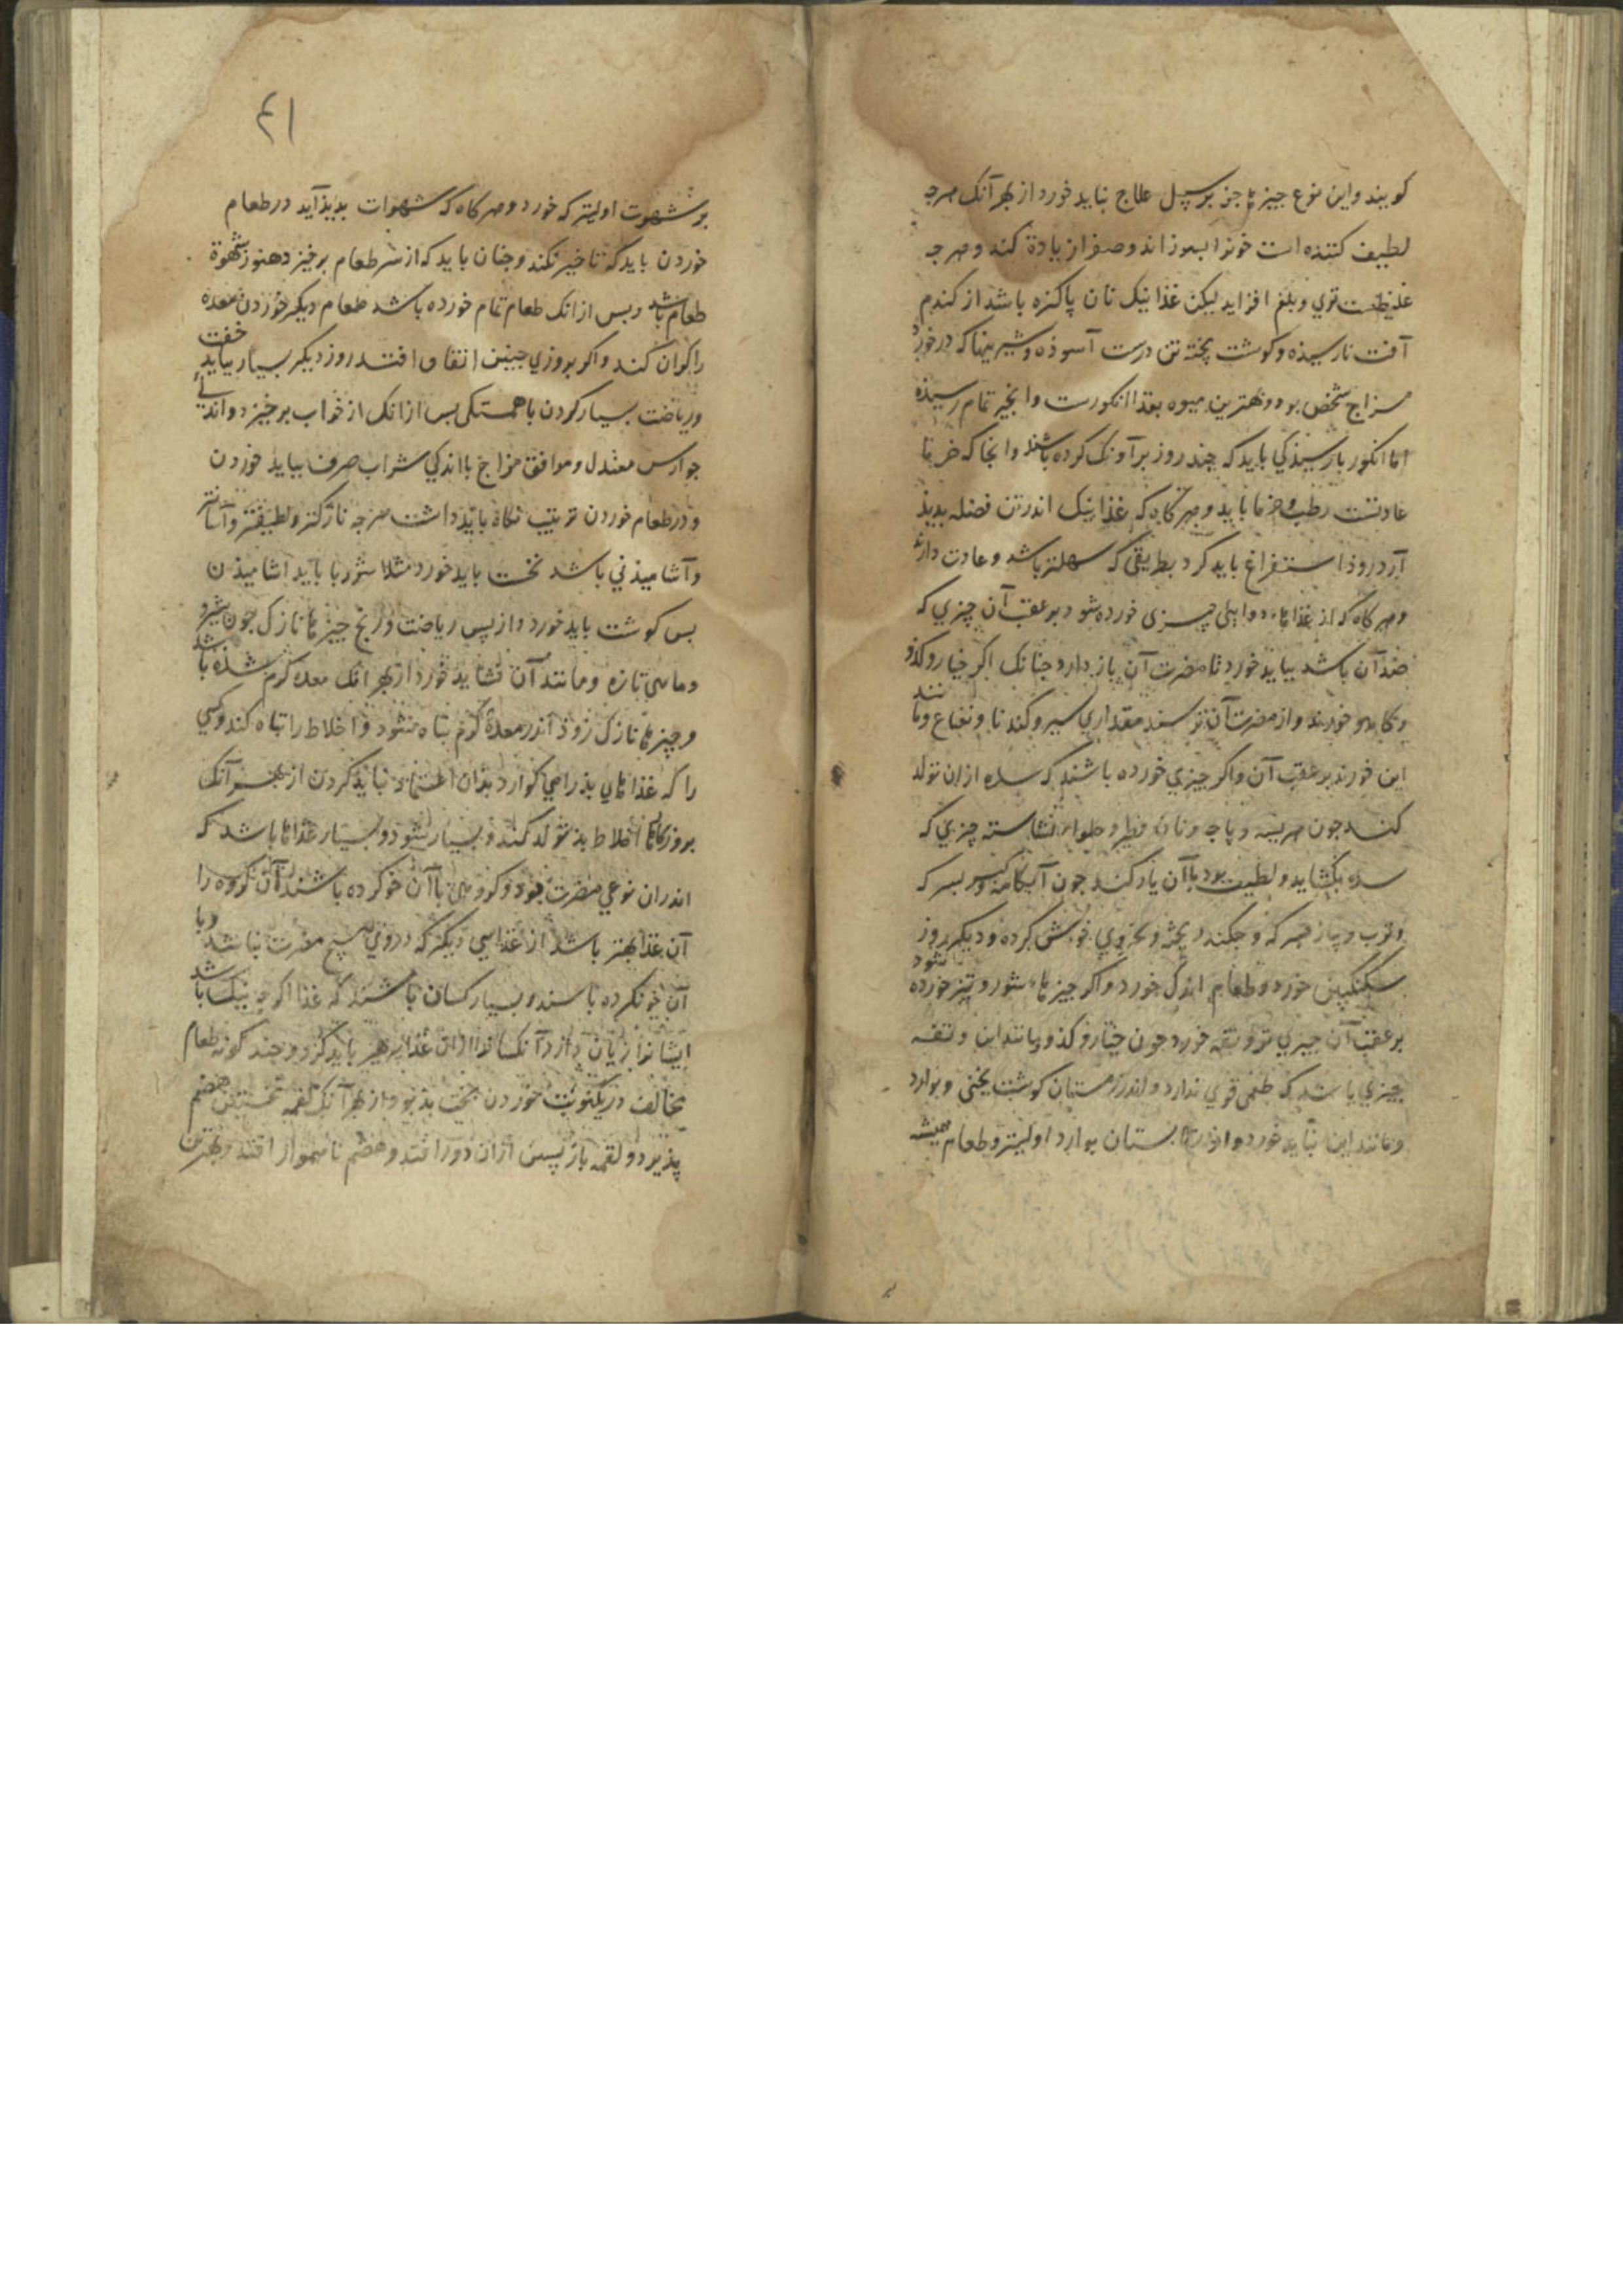 کویند و این نوع جیزها جز بر سپیل علاج نباید خورد از بهر آنک هرجه
لطیف کننده است خونرا بسوزاند و صفرا زیادة کند و هرجه
غلیظست تری و بلغم افزاید لیکن غذا نیک نان پاکیزه باشد از کندم
آفت نارسیذه و کوشت پخته تن درست آسوذه و شیرینیها که درخورد
مزاج شخص بود و بهترین میوه بغذا انکورست و انجیر تمام رسیذه
اما انکور بارسیذکی باید که چند روز بر آونک کرده باشند و انجا که خرما
عادتست رطب و خرما باید و هرکاه که غذا نیک اندر تن فضله بدیذ
آرد زوذ استفراغ باید کرد بطریقی که سهلتر باشد و عادت دارند
و هرکاه که از غذاهاء دوایی چیزی خورده شود بر عقب آن چیزی که
ضد آن باشد بباید خورد تا مضرت آن باز دارد جنانک اکر خیار و کذو
و کاهو خورند و از مضرت آن ترسند مقداری سیر و کندنا و نعناع و مانند
این خورند بر عقب آن و اکر چیزی خورده باشند که سده ازان تولد
کند جون هریسه و پاجه و نان فطیر و حلواء نشاسته چیزی که
سده بکشاید و لطیف بود با آن یاد کنند جون آبکامه و کبر بسرکه
و ترب و پیاز بسرکه و جکندر پخته و بخردل خوش کرده و دیکر روز
سکنکبین خورد و طعام اندک خورد و اکر جیزهاء شور و تیز خورده شود
بر عقب آن جیزی تر و تفه خورد جون خیار و کذو و مانند این و تفه
چیزی باشد که طعمی قوی ندارد و اندر زمستان کوشت یخنی و بوارد
و مانند این نباید خورد و اندر تابستان بوارد اولیتر و طعام همیشه
۴۱
بر شهوت اولیتر که خورد و هرکاه که شهوات بدیذ آید در طعام
خوردن باید که تاخیر نکند و جنان باید که از سر طعام برخیزد هنوز شهوة
طعام باشد و بس ازانک طعام تمام خورده باشد طعام دیکر خوردن معده
را کران کند و اکر بروزی جنین اتفاق افتد روز دیکر بسیار بباید خفت
و ریاضت بسیار کردن باهستکی بس ازانک از خواب برخیزد و اندکی
جوارس معتدل و موافق مزاج با اندکی شراب صرف بباید خوردن
و در طعام خوردن ترتیب نکاه باید داشت هرجه نازکتر و لطیفتر و آسانتر
و آشامیذنی باشد نخست باید خورد مثلا شوربا باید اشامیذن
بس کوشت باید خورد و از پس ریاضت و رنج جیزها نازک جون شیر
و ماهی تازه و مانند آن نشاید خورد از بهر انک معده کرم شده باشد
و چیزها نازک زوذ اندر معدۀ کرم تباه شود و اخلاط را تباه کند و کسی
را که غذاهای بذ را همی کوارد بذان اعتماد نباید کردن از بهر آنک
بروزکارها اخلاط بذ تولد کند و بسیار شود و بسیار غذاها باشد که
اندران نوعی مضرت بود و کروهی با آن خو کرده باشند آن کروه را
آن غذا بهتر باشد از غذایی دیکر که در وی هیچ مضرت نباشد و با
آن خو نکرده باشند و بسیار کسان باشند که غذا اکرجه نیک باشد
ایشانرا زیان دارد آنکسانرا ازان غذا پرهیز باید کرد و جند کونه طعام
مخالف در یکنوبت خوردن سخت بذ بود از بهر آنک لقمه نخستین هضم
پذیرد و لقمه باز پسین ازان دور افتد و هضم ناهموار افتد و بهترین